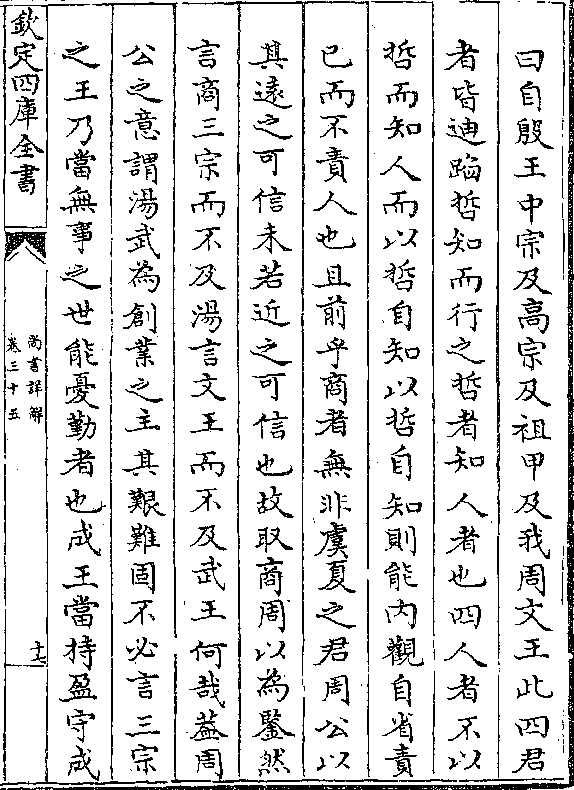 曰自殷王中宗及高宗及祖甲及我周文王此四君
者皆迪蹈哲知而行之哲者知人者也四人者不以
哲而知人而以哲自知以哲自知則能内觀自省責
已而不責人也且前乎商者無非虞夏之君周公以
其逺之可信未若近之可信也故取商周以為鑒然
言商三宗而不及湯言文王而不及武王何哉葢周
公之意謂湯武為創業之主其艱難固不必言三宗
之王乃當無事之世能憂勤者也成王當持盈守成
欽定四庫全書
尚書詳解
卷三十五
十七